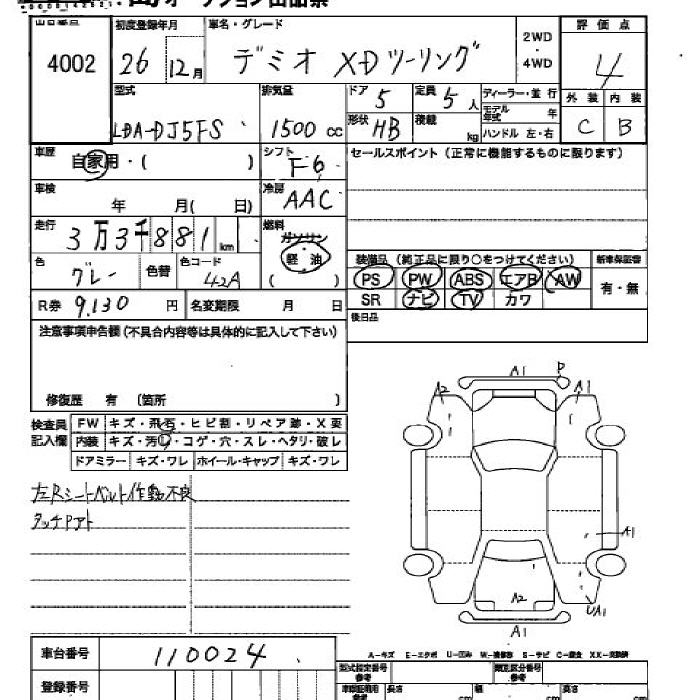 オークション出品票
出品番号
4002
初度登録年月
26 年 12月
車名・グレード
デミオ XDツーリング
2WD
4WD
評価点
4
型式
LDA-DJ5FS
排気量
1500 cc
ドア 5
定員 5 人
形状 HB
積載 kg
ディーラー・並行
モデル年式 年
ハンドル 左・右
外装 内装
C B
車歴
自家用・( )
シフト
F6
セールスポイント (正常に機能するものに限ります)
車検
年 月( 日)
冷房
AAC
走行
3万3千881 km
燃料
ガソリン
軽油
( )
色
グレー
色替
色コード
42A
装備品 (純正品に限り○をつけてください)
新車保証書
PS PW ABS エアB AW
SR ナビ TV カワ
有・無
R券 9,130 円
名変期限 月 日
後日品
注意事項申告欄 (不具合内容等は具体的に記入して下さい)
修復歴 有 〔箇所 〕
検査員記入欄
FW キズ・飛石・ヒビ割・リペア跡・X要
内装 キズ・汚し・コゲ・穴・スレ・ヘタリ・破レ
ドアミラー キズ・ワレ ホイール・キャップ キズ・ワレ
左Rシートベルト作動不良
タッチPアト
A1 P
A2 A1
A1
A2
UA1
A1
車台番号
110024
登録番号
A-キズ E-エクボ U-凹み W-補修跡 S-サビ C-腐食 XX-交換済
型式指定番号
類別区分番号
長さ cm 幅 cm 高さ cm